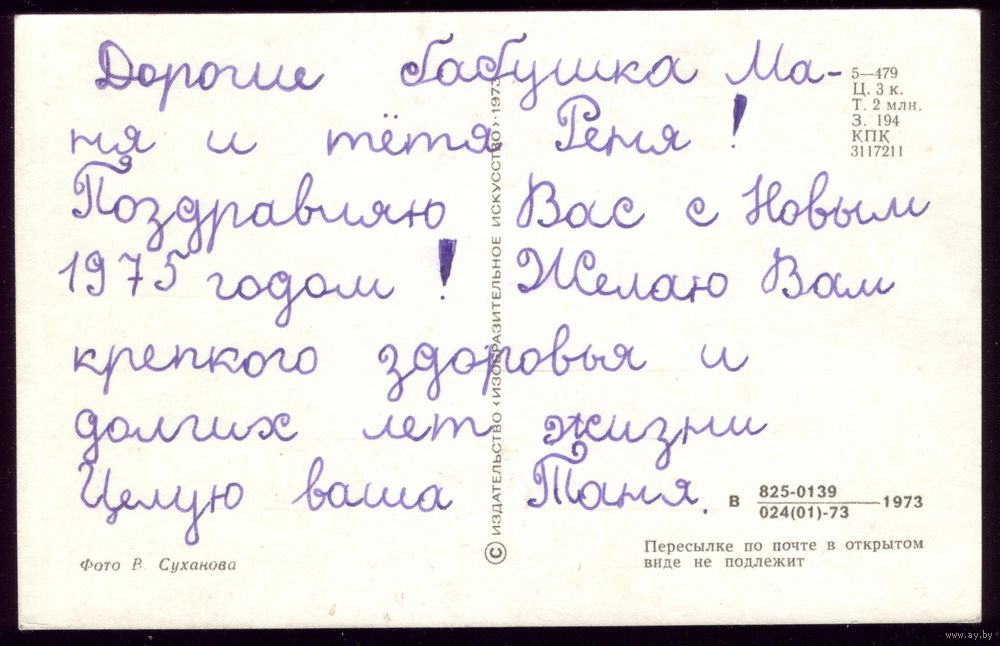 Дорогие бабушка Ма-
ня и тётя Реня!
Поздравляю Вас с Новым
1975 годом! Желаю Вам
крепкого здоровья и
долгих лет жизни
Целую ваша Таня.
5—479
Ц. 3 к.
Т. 2 млн.
З. 194
КПК
3117211
© ИЗДАТЕЛЬСТВО «ИЗОБРАЗИТЕЛЬНОЕ ИСКУССТВО» · 1973
В 825-0139
024(01)-73 —1973
Фото В. Суханова
Пересылке по почте в открытом
виде не подлежит
www.ay.by